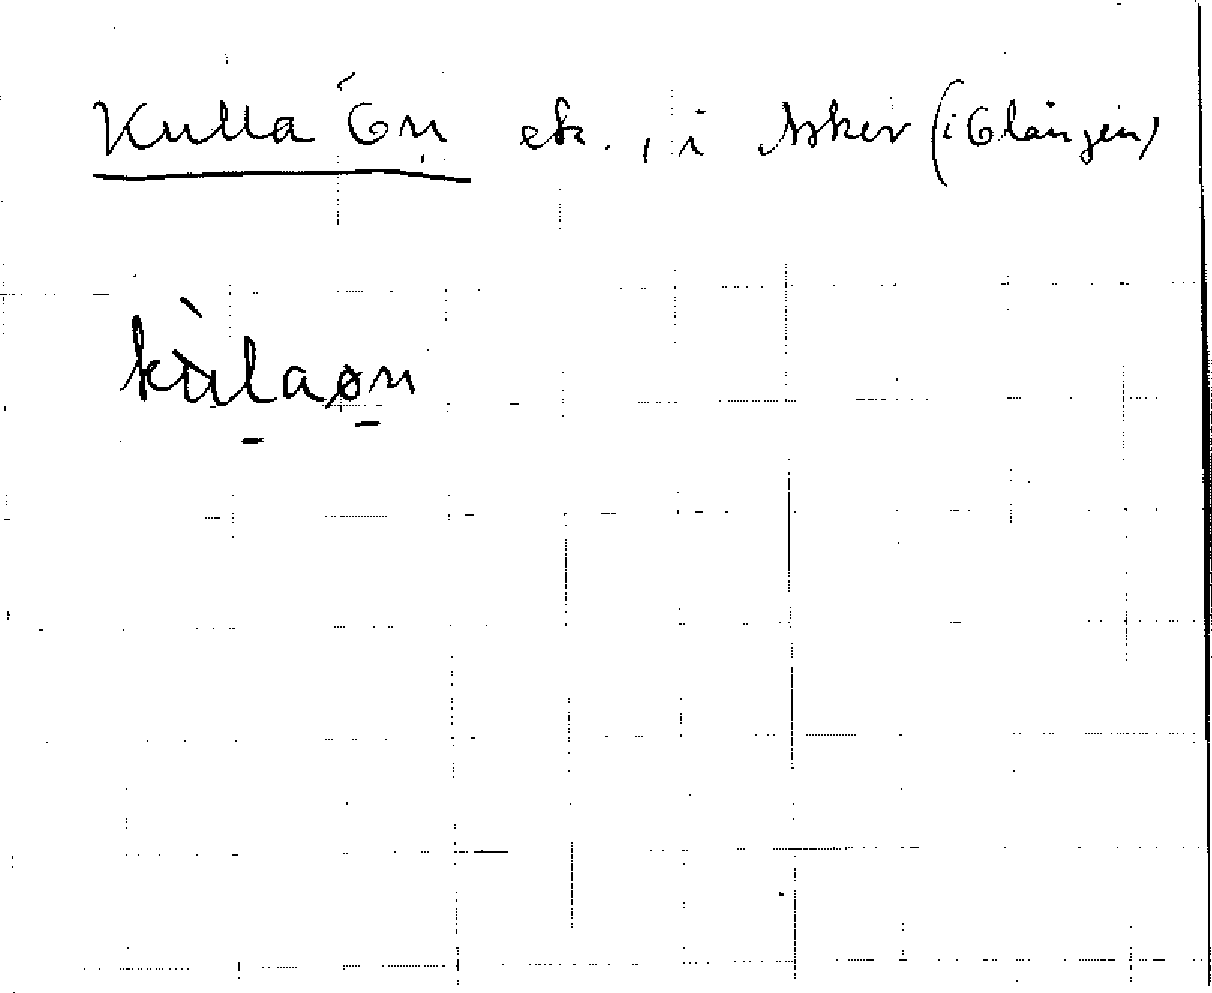 Kulla Ön etc., i Asker (i Glången)
kùlaøn